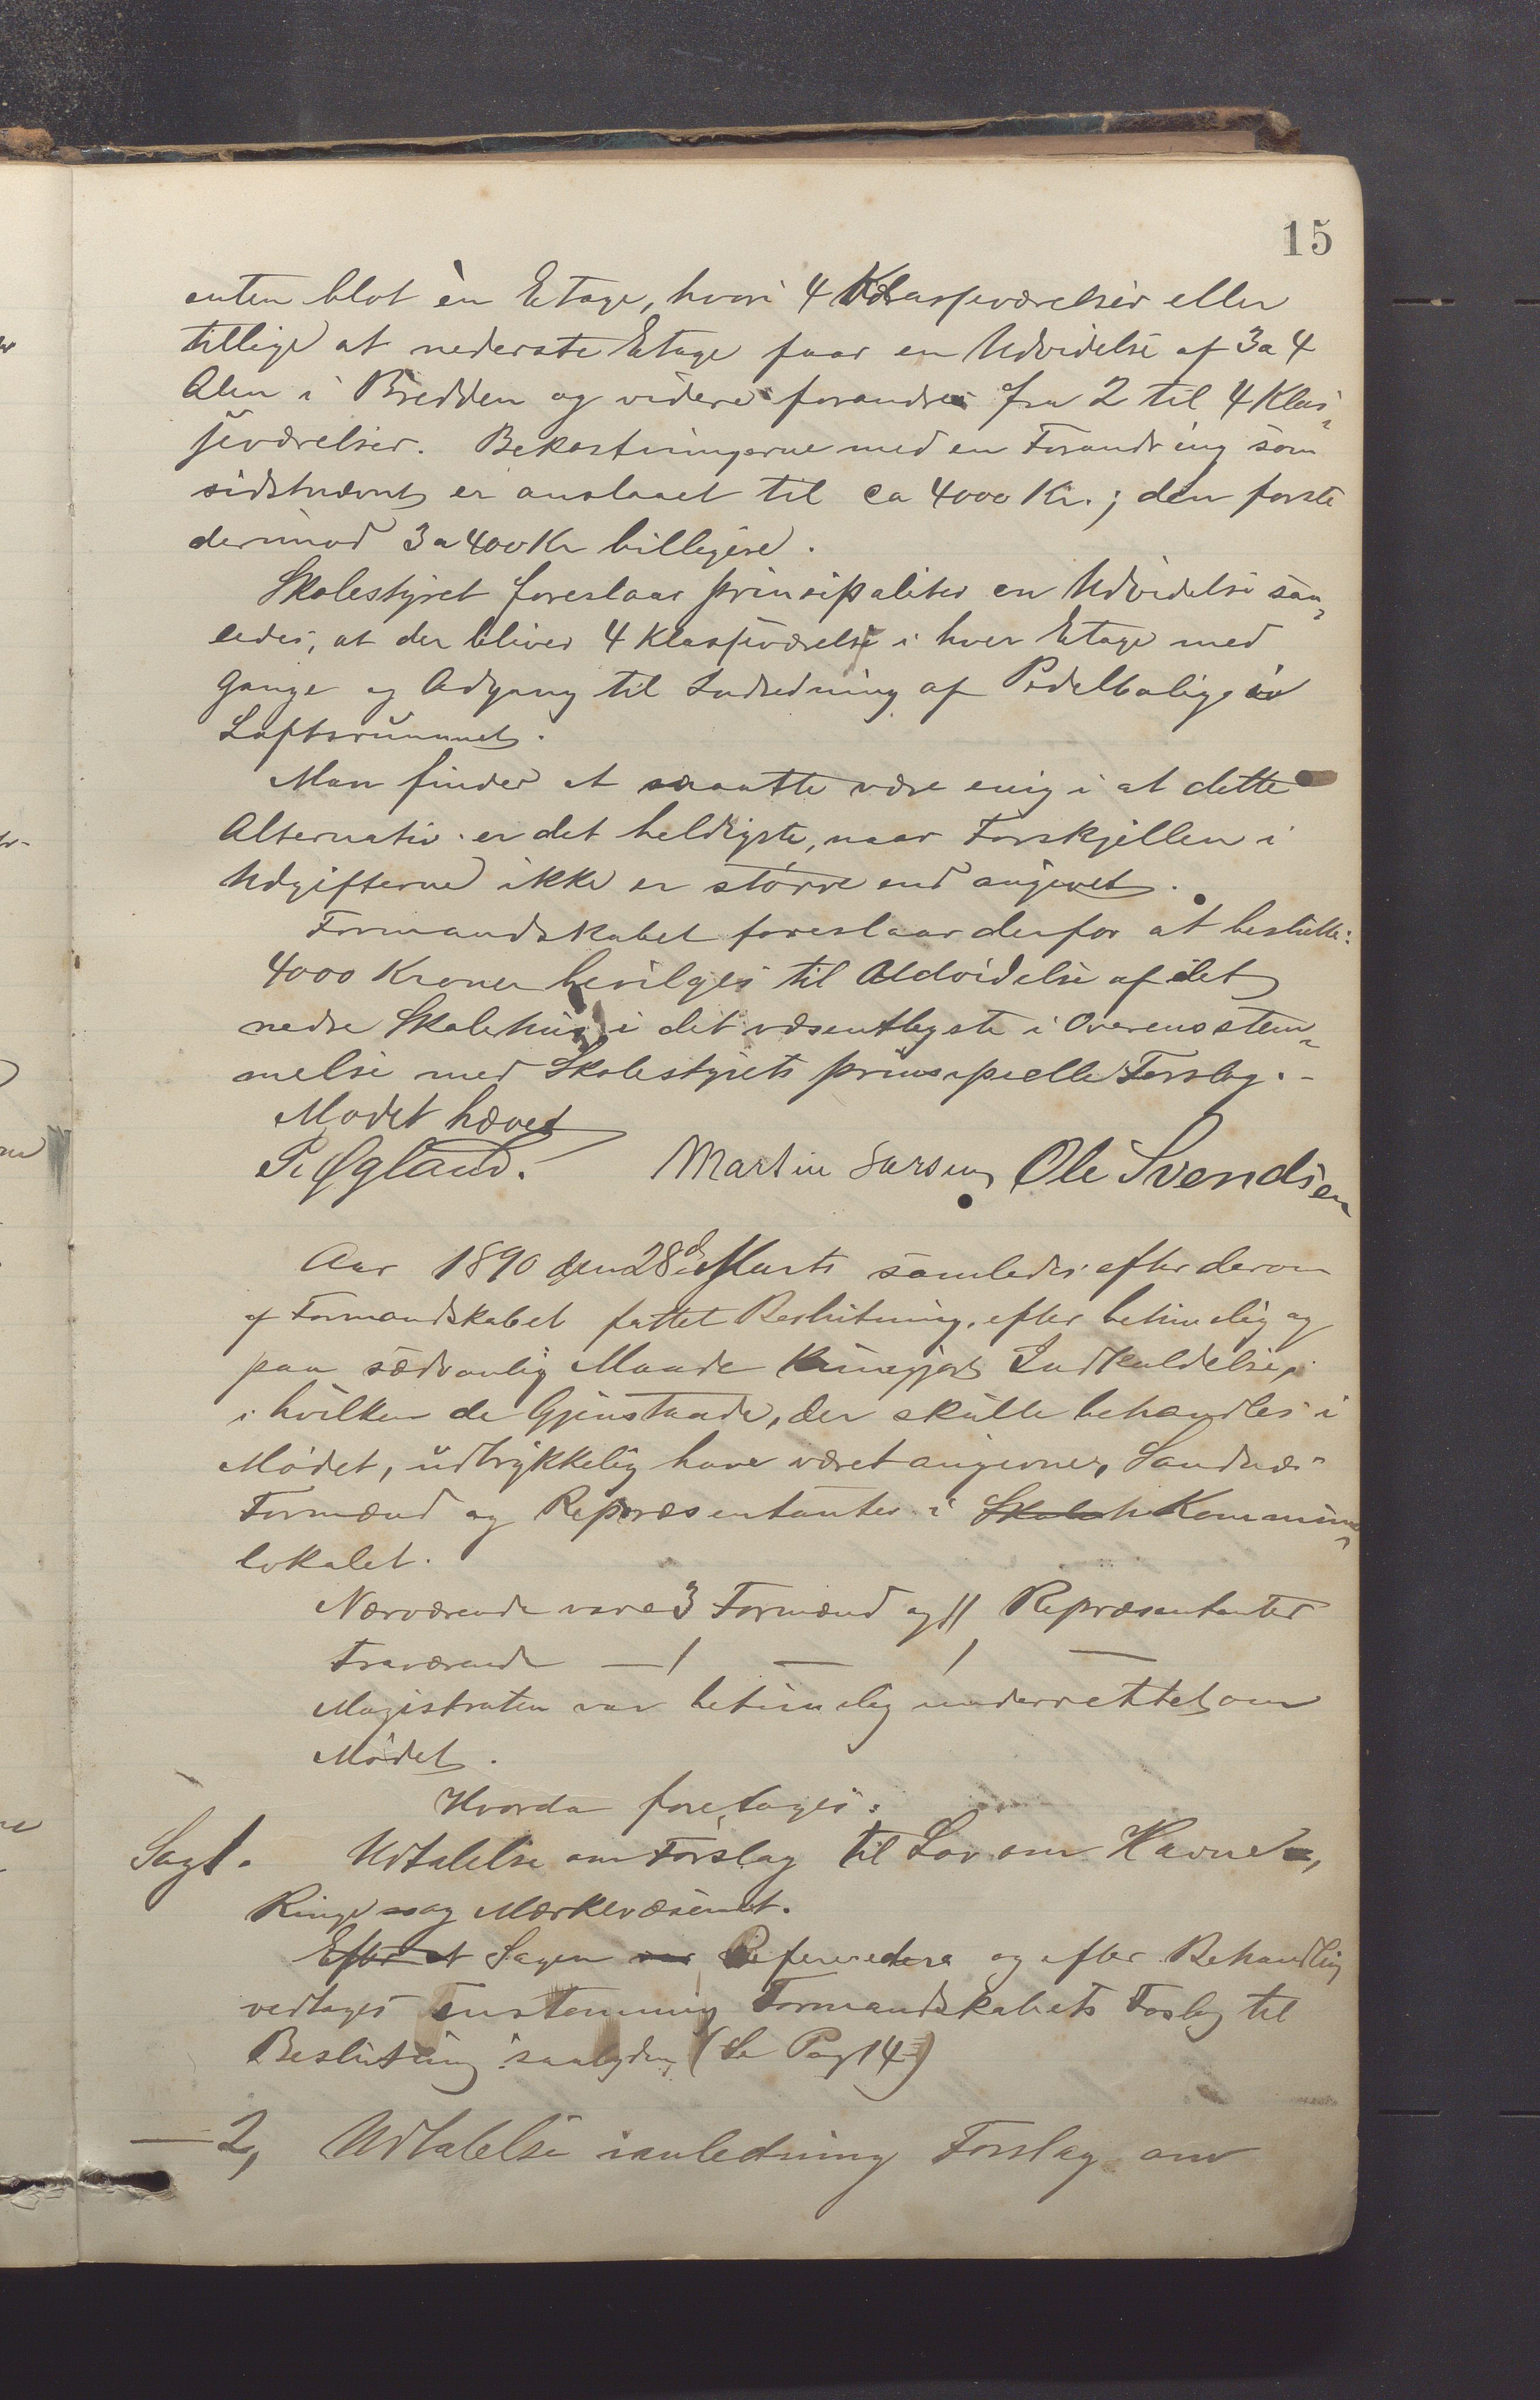 15
enten blot èn Etage, hvori 4 Klasseværelser eller
tillige at nederste Etage faar en Udvidelse af 3 a 4
Alen i Bredden og videre forandres fra 2 til 4 Klas-
seværelser. Bekostningerne med en Forandring som
sidstnævnt er anslaaet til ca 4000 Kr.; den første
derimod 3 a 400 Kr billigere.
Skolestyret foreslaar prinsipaliter en Udvidelse saa-
ledes, at der bliver 4 Klasseværelse i hver Etage med
Gange og Adgang til Indredning af Pedelbolig i
Loftsrummet.
Man finder at maatte være enig i at dette
Alternativ er det heldigste, naar Forskjellen i
Udgifterne ikke er større end angivet.
Formandskabet foreslaar derfor at beslutte:
4000 Kroner bevilges til Udvidelse af det
nedre Skolehus i det væsentligste i Overensstem-
melse med Skolestyrets prinsipielle Forslag. -
Mødet hævet
P. Øgland. Martin Ole Svendsen
Aar 1890 den 28de Marts samledes efter derom
af Formandskabet fattet Beslutning, efter betimelig og
paa sædvanlig Maade kundgjort Indkaldelse,
i hvilken de Gjenstande, der skulle behandles i
Mødet, udtrykkelig have været angivne, Sandnæs
Formænd og Repræsentanter i Skoleh Kommune-
lokalet.
Nærværende vare 3 Formænd og 11 Repræsentanter
Fraværende — 1 — 1 —
Magistraten var betimelig underrettet om
Mødet.
Hvorda foretages:
Sag 1. Udtalelse om Forslag til Lov om Havne-,
Ringe- og Mærkevæsenet.
Efter at Sagen var Refereredere og efter Behandling
vedtages enstemmig Formandskabets Foslag til
Beslutning saalydene (Se Pag 14)
— 2, Udtalelse i anledning Forslag om